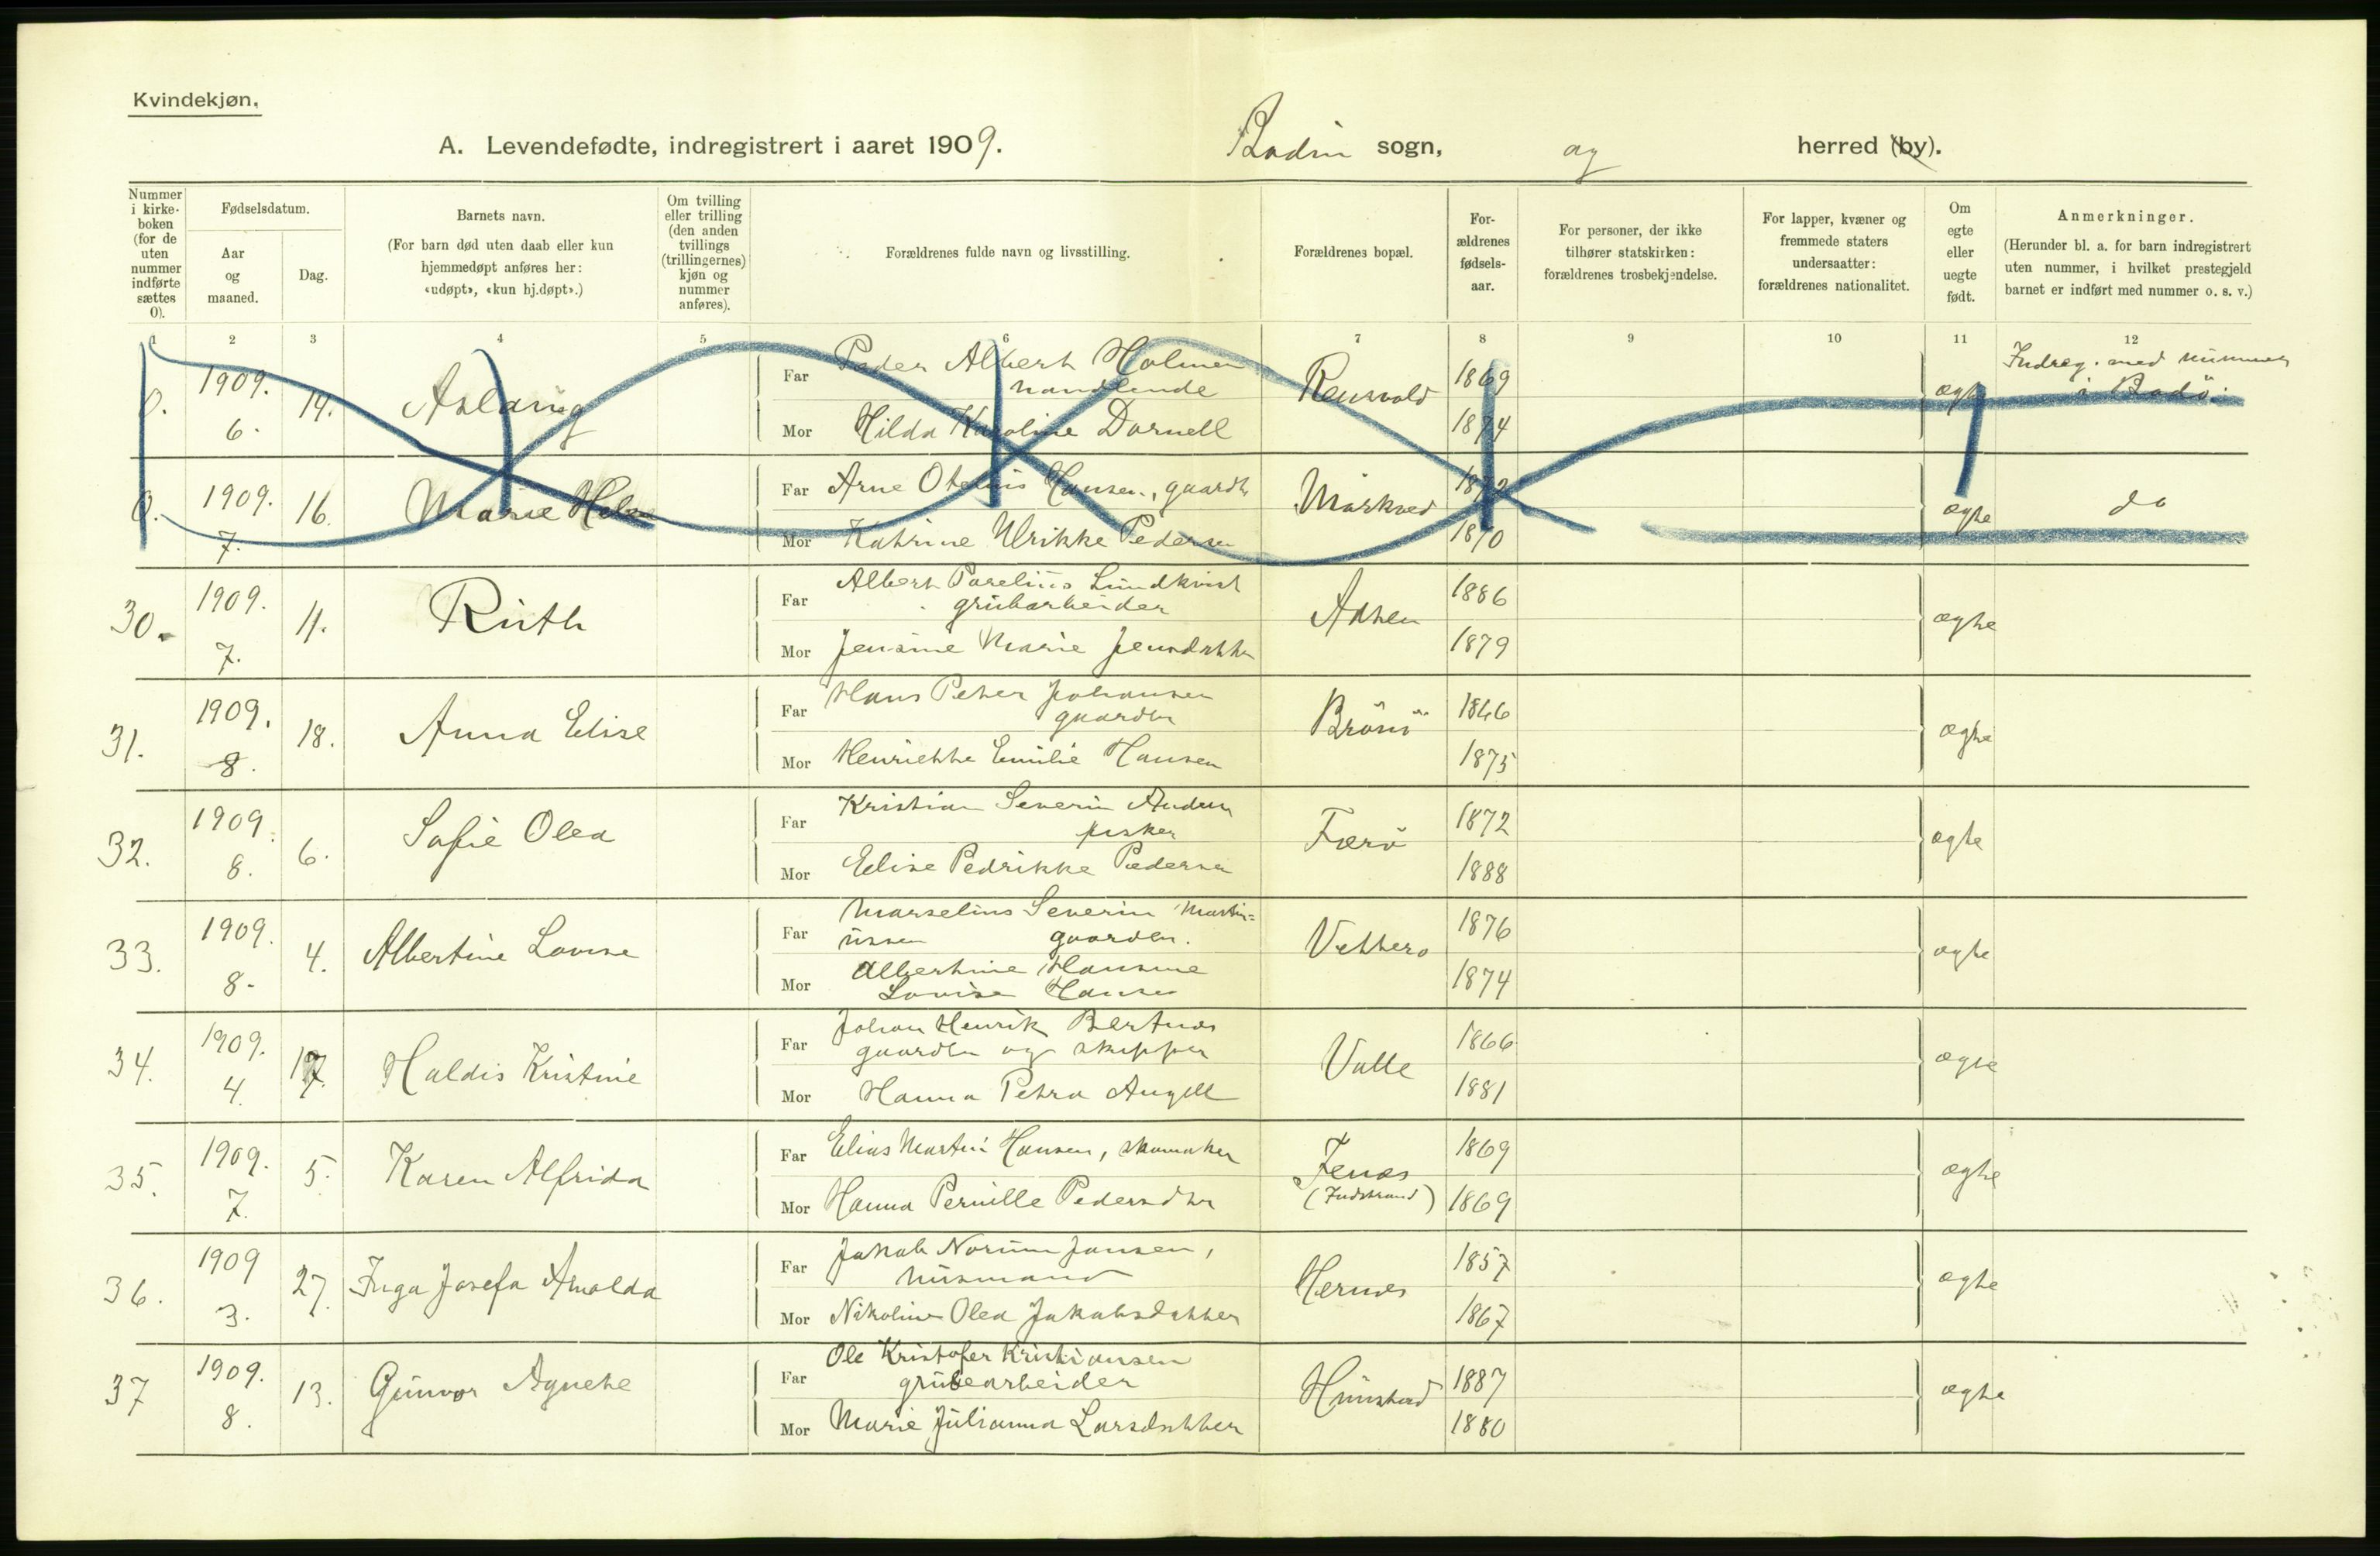 Kvindekjøn.
A. Levendefødte, indregistrert i aaret 1909.
Bodin sogn, og herred (by).
Nummer i kirke-boken (for de uten nummer indførte sættes 0).
Fødselsdatum.
Aar og maaned.
Dag.
Barnets navn.
(For barn død uten daab eller kun hjemmedøpt anføres her: «udøpt», «kun hj.døpt».)
Om tvilling eller trilling (den anden tvillings (trillingernes) kjøn og nummer anføres).
Forældrenes fulde navn og livsstilling.
Forældrenes bopæl.
For-ældrenes fødsels-aar.
For personer, der ikke tilhører statskirken: forældrenes trosbekjendelse.
For lapper, kvæner og fremmede staters undersaatter: forældrenes nationalitet.
Om egte eller uegte født.
Anmerkninger.
(Herunder bl. a. for barn indregistrert uten nummer, i hvilket prestegjeld barnet er indført med nummer o. s. v.)
1 2 3 4 5 6 7 8 9 10 11 12
0. 1909. 6. 14. Aslaug
Far Peder Albert Holmen handlende 1869
Mor Hilda Karoline Darnell 1874
Rensvold ægte Indreg. med nummer i Bodø.
0. 1909. 7. 16. Marie Helen
Far Arne Otenius Hansen, gaardbr
Mor Katrine Ulrikke Pedersen 1870
Mørkved ægte do
30. 1909. 7. 11. Ruth
Far Albert Parelius Lundkvist grubarbeider 1886
Mor Jensine Marie Jensdatter 1879
ægte
31. 1909. 8. 18. Anna Elise
Far Hans Peter Johansen gaardbr 1866
Mor Henriette Emilie Hansen 1875
ægte
32. 1909. 8. 6. Sofie Olea
Far Kristian Severin Anders fisker 1872
Mor Elise Pedrikke Pedersen 1888
ægte
33. 1909. 8. 4. Albertine Lovise
Far Marselius Severin Martin=
ussen gaardbr. 1876
Mor Albertine Hansine
Lovise Hansen 1874
ægte
34. 1909. 4. 17. Haldis Kristine
Far Johan Henrik Bertnes
gaardbr og skipper 1866
Mor Hanna Petra Angell 1881
Valle ægte
35. 1909. 7. 5. Karen Alfrida
Far Elias Martin Hansen, skomaker 1869
Mor Hanna Pernille Pedersdtr 1869
Fenes (Indstrand) ægte
36. 1909 3. 27. Inga Josefa Arnolda
Far Jakob Norum Jansen, husmand 1857
Mor Nikoline Olea Jakobsdatter 1867
Hernes ægte
37 1909. 8. 13. Gunvor Agnete
Far Ole Kristofer Kristiansen
grubearbeider 1887
Mor Marie Julianna Larsdatter 1880
Hunstad ægte